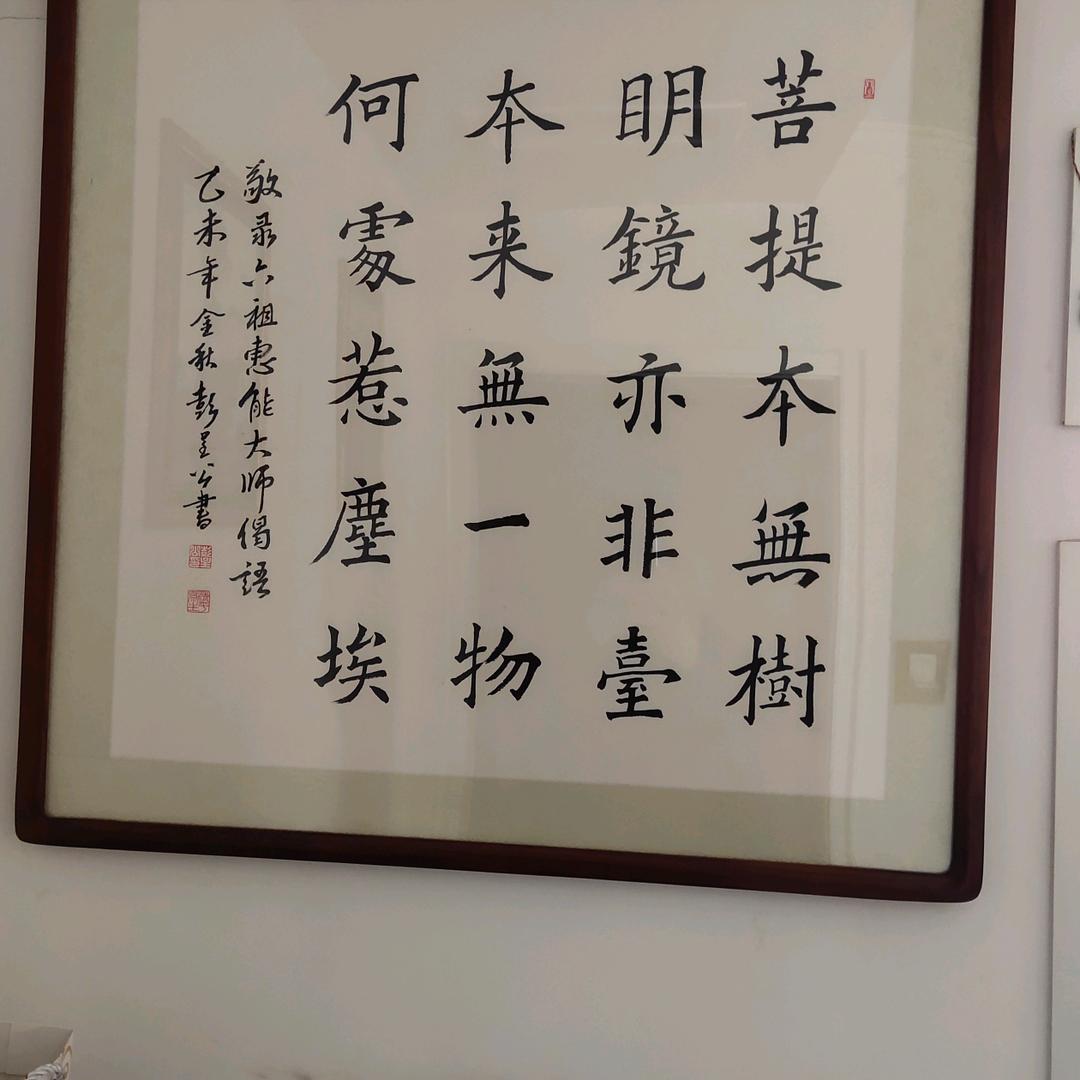 菩提本無樹
明鏡亦非臺
本来無一物
何處惹塵埃
敬录六祖惠能大师偈語
乙未年金秋彭呈公書